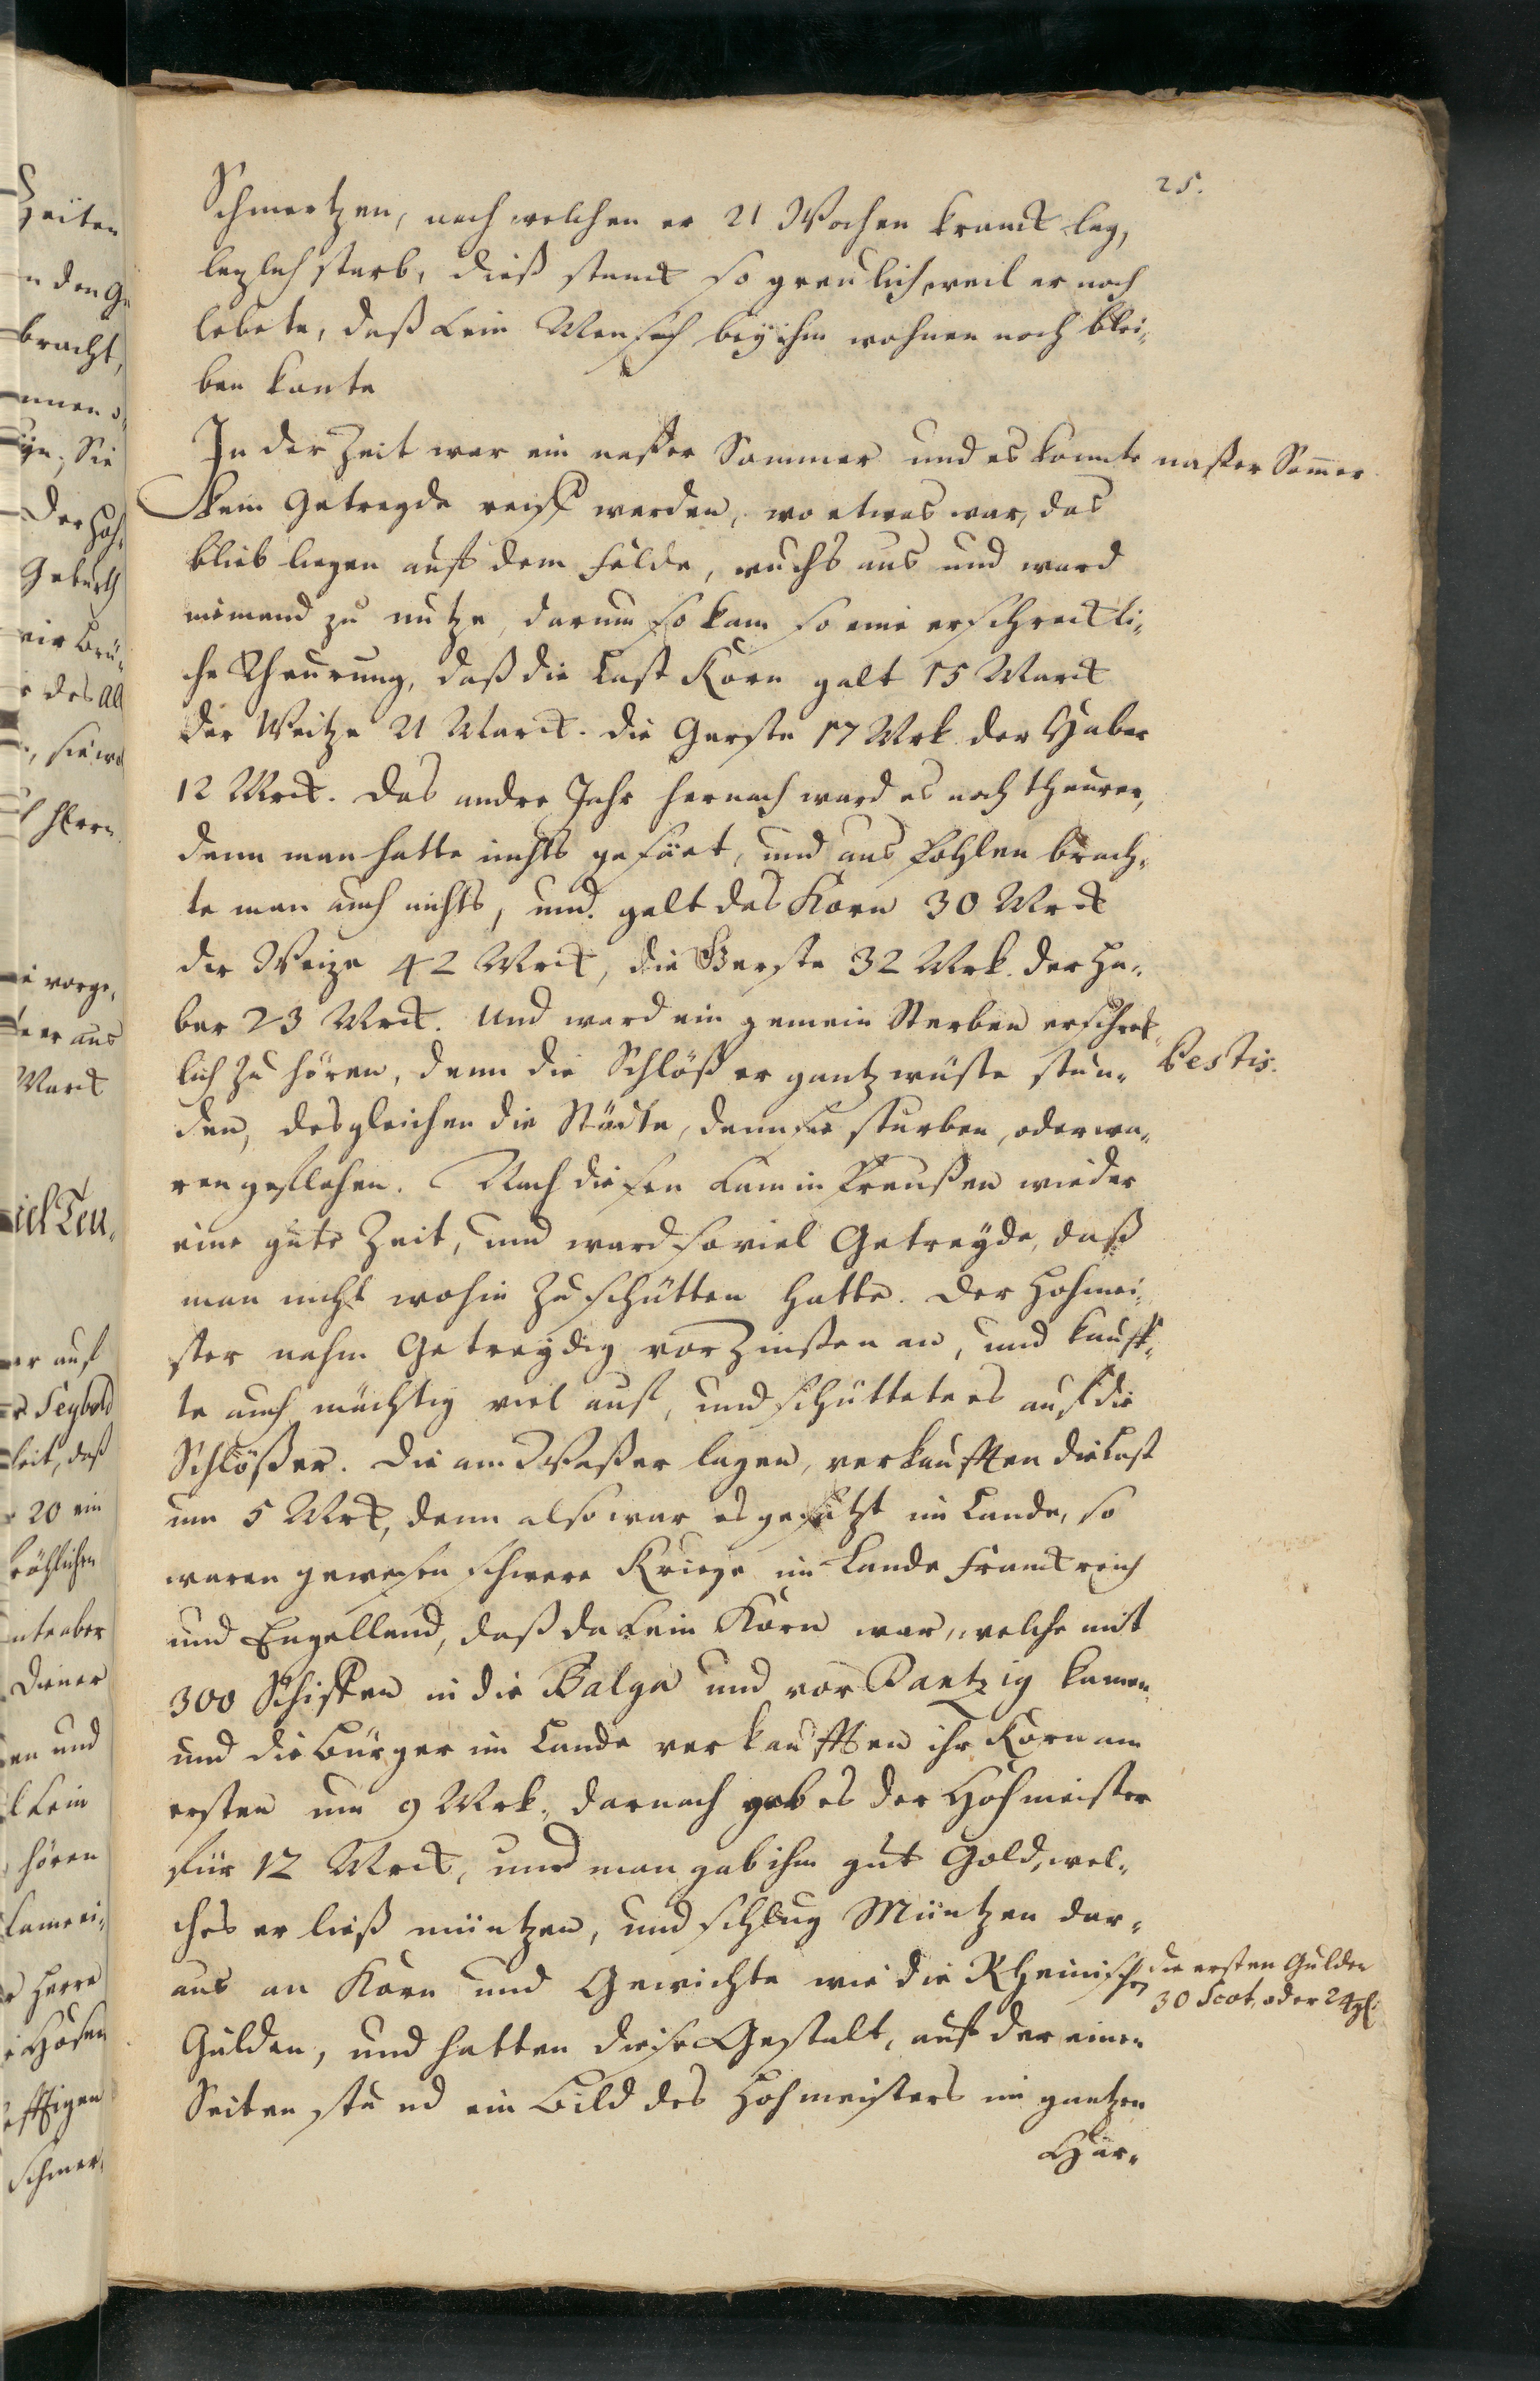 25.
Schmertzen, nach welchen er 21 Wochen kranck lag,
lezlich starb, dieß stanck so greulich, weil er noch
lebete, daß kein Mensch bey ihm wohnen noch blei„
ben konte
In der Zeit war ein naßer Sommer und es konnte
naßer Som̅er
kein Getreyde reiff werden, wo etwas war, das
blieb liegen auff dem Felde, wuchs aus und ward
niemand zu nutze, darum so kam so eine erschreckli„
che Theurung, daß die Last Korn galt 15 Marck
der Weitze 21 Marck. die Gerste 17 Mrk. der Haber
12 Mrck. Das andre Jahr hernach ward es noch theurer,
denn man hatte nichts gesäet, und aus Pohlen brach„
te man auch nichts, und galt das Korn 30 Mrck
der Weize 42 Mrck, die Gerste 32 Mrk. der Ha„
ber 23 Mrck. Und ward ein gemein Sterben erschrek„
lich zu hören, denn die Schlößer gantz wüste stun„
Pestis.
den, desgleichen die Städte, denn sie sturben, oder wa„
ren geflohen. Nach diesen kam in Preußen wieder
eine gute Zeit, und ward soviel Getreyde, daß
man nicht wohin zu schütten hatte. Der Hohmei„
ster nahm Getreydig vor Zinßen an, und kauff„
te auch mächtig viel auf, und schüttete es auf die
Schlößer. Die am Waßer lagen, verkaufften die Last
um 5 Mrck, denn also war es gesetzt im Lande, so
waren gewesen schwere Kriege im Lande Franckreich
und Engelland, daß da kein Korn war, welche mit
300 Schiffen in die Balga und vor Dantzig kamen
und die Bürger im Lande verkaufften ihr Korn am
ersten um 9 Mrk. darnach gab es der Hohmeister
für 12 Mrck, und man gab ihm gut Gold, wel„
ches er ließ müntzen, und schlug Müntzen dar„
aus an Korn und Gewichte wie die Rheinischen
die ersten Gulden
30 Scot, oder 24 gl.
Gulden, und hatten diese Gestalt, auf der einen
Seiten stund ein Bild des Hohmeisters im gantzen
Har„